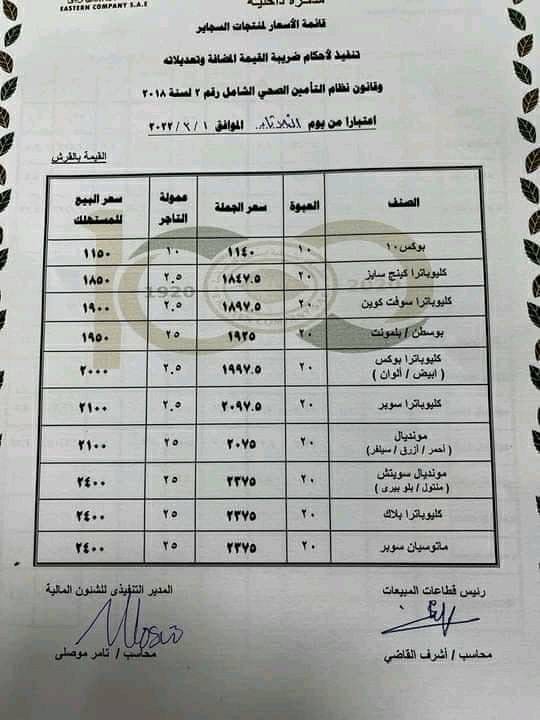 EASTERN COMPANY S.A.E
قائمة الأسعار لمنتجات السجاير
تنفيذ لأحكام ضريبة القيمة المضافة وتعديلاته
وقانون نظام التأمين الصحي الشامل رقم ٢ لسنة ٢٠١٨
اعتبارا من يوم الموافق ١ / / ٢٠٢٢
القيمة بالقرش
الصنف العبوة سعر الجملة عمولة التاجر سعر البيع للمستهلك
بوكس١٠ ١٠ ١١٤٠ ١٠ ١١٥٠
كليوباترا كينج سايز ٢٠ ١٨٤٧.٥ ٢.٥ ١٨٥٠
كليوباترا سوفت كوين ٢٠ ١٨٩٧.٥ ٢.٥ ١٩٠٠
بوسطن / بلمونت ٢٠ ١٩٢٥ ٢٥ ١٩٥٠
كليوباترا بوكس
( ابيض / ألوان ) ٢٠ ١٩٩٧.٥ ٢.٥ ٢٠٠٠
كليوباترا سوبر ٢٠ ٢٠٩٧.٥ ٢.٥ ٢١٠٠
مونديال
( أحمر / أزرق / سيلفر) ٢٠ ٢٠٧٥ ٢٥ ٢١٠٠
مونديال سويتش
( منتول / بلو بيرى ) ٢٠ ٢٣٧٥ ٢٥ ٢٤٠٠
كليوباترا بلاك ٢٠ ٢٣٧٥ ٢٥ ٢٤٠٠
ماتوسيان سوبر ٢٠ ٢٣٧٥ ٢٥ ٢٤٠٠
1920 100 2020
رئيس قطاعات المبيعات
محاسب / أشرف القاضي
المدير التنفيذى للشئون المالية
محاسب / تامر موصلى